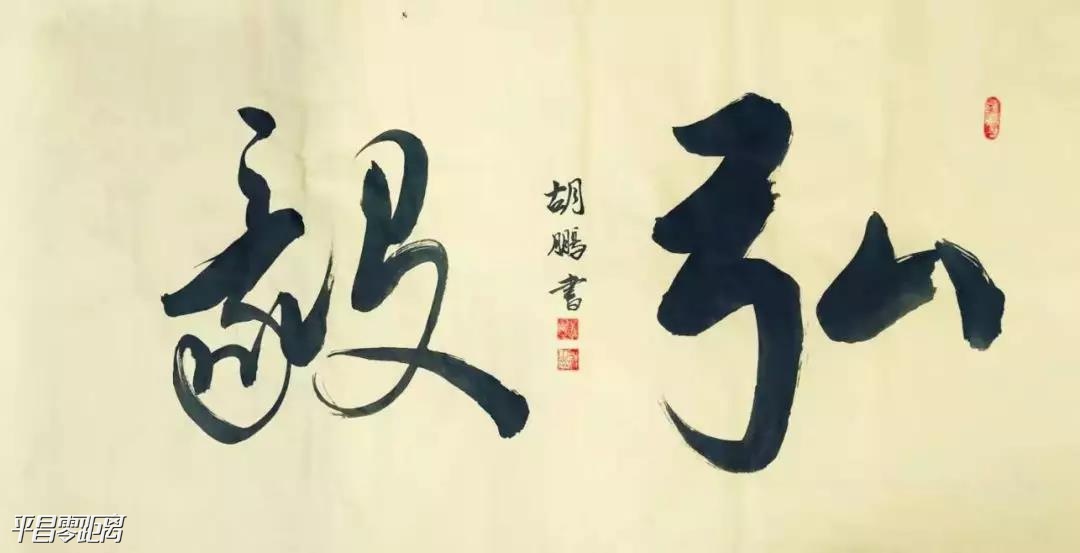 弘毅
胡鹏書
平昌零距离